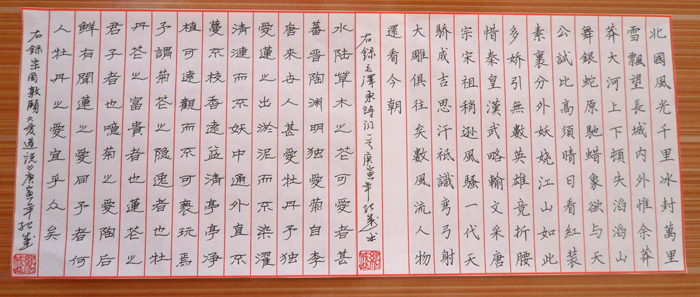 北國風光千里冰封萬里
雪飄望長城內外惟余莽
莽大河上下頓失滔滔山
舞銀蛇原馳蜡象欲与天
公試比高須晴日看紅装
素裹分外妖嬈江山如此
多嬌引無數英雄竞折腰
惜秦皇漢武略輸文采唐
宗宋祖稍遜風騷一代天
骄成吉思汗祗識彎弓射
大雕俱往矣數風流人物
還看今朝
右錄毛澤東詩詞一首庚寅年
水陸草木之花可愛者甚
蕃晉陶渊明独愛菊自李
唐来世人甚愛牡丹予独
愛蓮之出淤泥而不染濯
清漣而不妖中通外直不
蔓不枝香遠益清亭亭淨
植可遠觀而不可亵玩焉
予謂菊花之隐逸者也牡
丹花之富貴者也蓮花之
君子者也噫菊之愛陶后
鮮有聞蓮之愛同予者何
人牡丹之愛宜乎众矣
右錄宋周敦頤之愛蓮說庚寅年